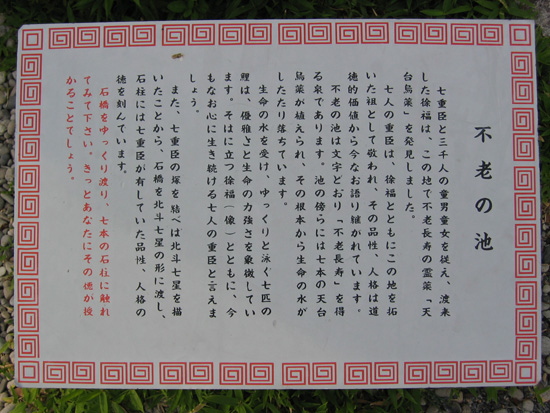 不老の池
七重臣と三千人の童男童女を従え、渡来
した徐福は、この地で不老長寿の霊薬「天
台烏薬」を発見しました。
七人の重臣は、徐福とともにこの地を拓
いた祖として敬われ、その品性、人格は道
徳的価値から今なお語り継がれています。
不老の池は文字どおり「不老長寿」を得
る泉であります。池の傍らには七本の天台
烏薬が植えられ、その根本から生命の水が
したたり落ちています。
生命の水を受け、ゆっくりと泳ぐ七匹の
鯉は、優雅さと生命の力強さを象徴してい
ます。そばに立つ徐福（像）とともに、今
もなお心に生き続ける七人の重臣と言えま
しょう。
また、七重臣の塚を結べば北斗七星を描
いたことから、石橋を北斗七星の形に渡し、
石柱には七重臣が有していた品性、人格の
徳を刻んでいます。
石橋をゆっくり渡り、七本の石柱に触れ
てみて下さい。きっとあなたにその徳が授
かることでしょう。